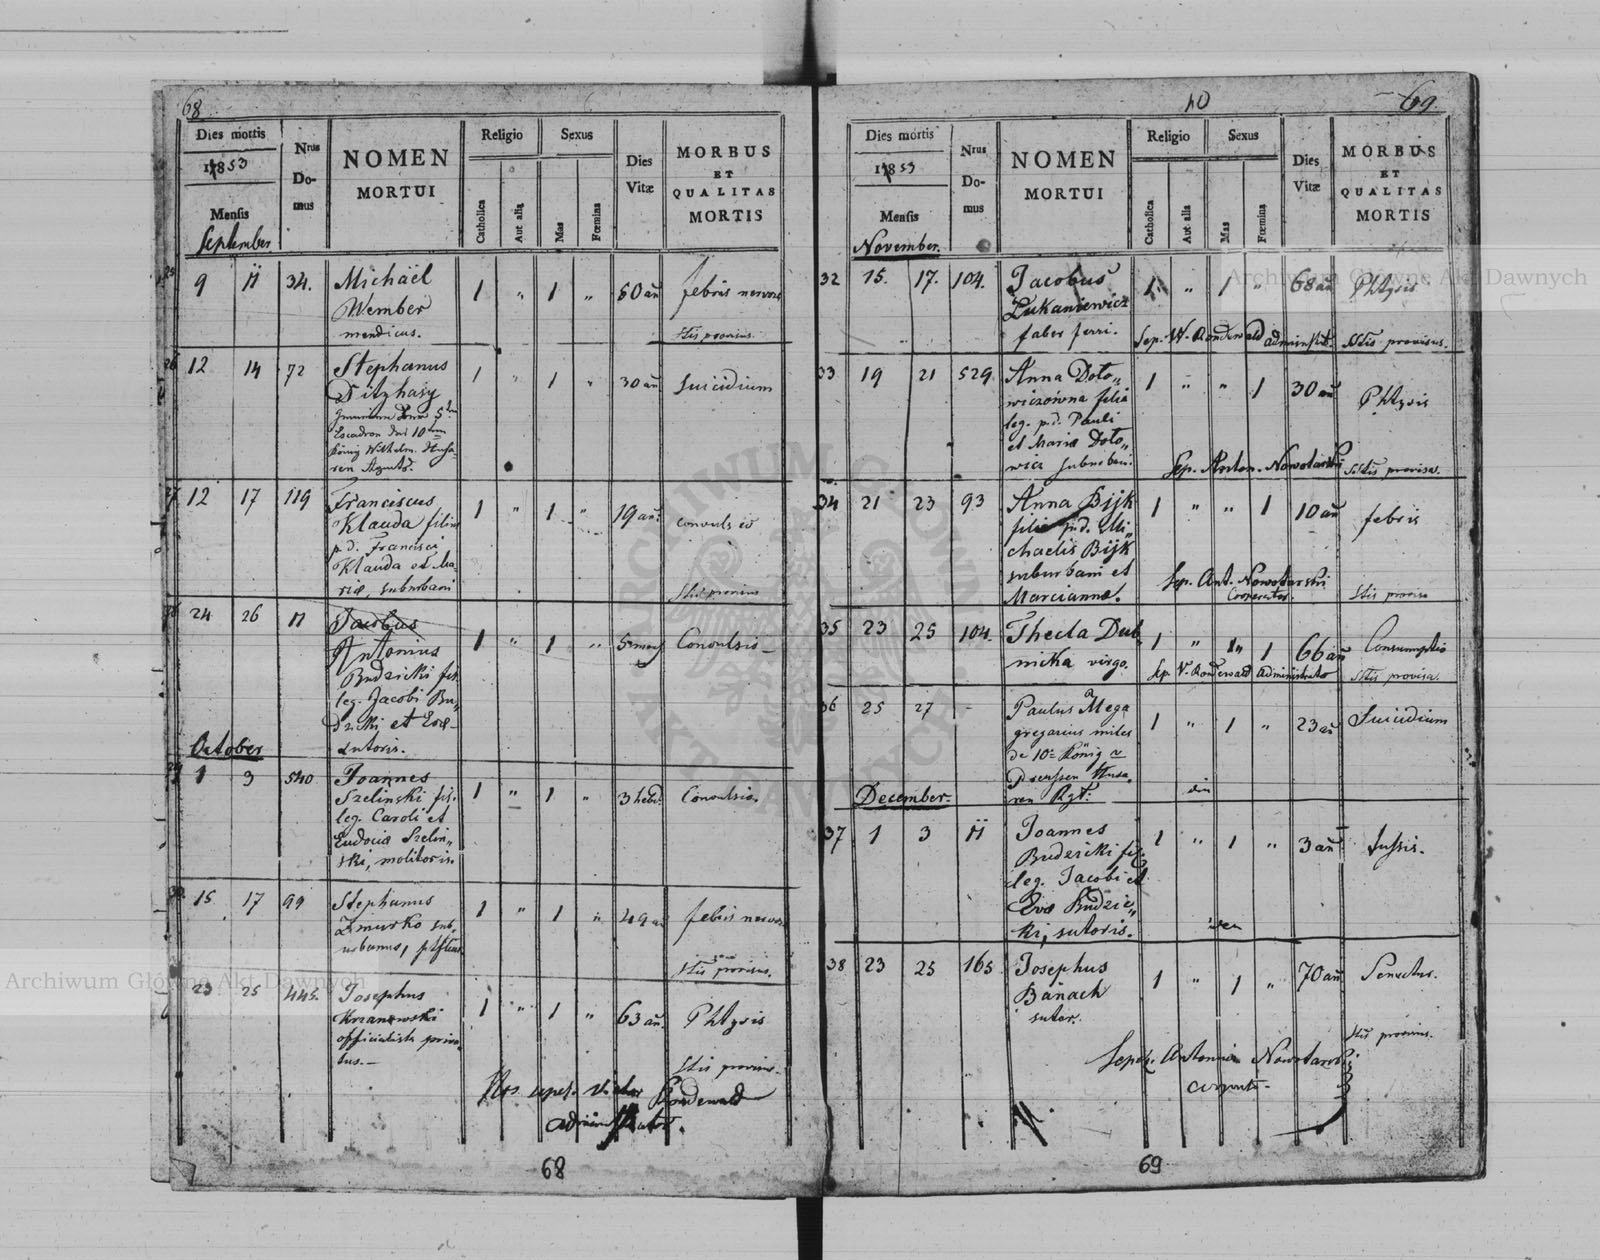 68
Dies mortis
1853
Mensis
September
Nrus
Do-
mus
NOMEN
MORTUI
Religio
Catholica
Aut alia
Sexus
Mas
Fœmina
Dies
Vitæ
MORBUS
ET
QUALITAS
MORTIS
9 11 34. Michäel 1 " 1 " 50 añ febris nervosa
Wember
mendicus.
Stis provisus.
26 12 14 72 Stephanus 1 " 1 " 30 añ Suicidium
Ditzhasy
Escadron des 10
König Wilhelm Husa-
ren Regmts.
27 12 17 119 Franciscus 1 " 1 " 19 añ. convulsio
Klauda filius
p. d. Francisci
Klauda et Ma-
riæ, suburbani
Stis provisus
24 26 11 Jacobus
Antonius 1 " 1 " 5 mens Convulsio
Budzicki fil.
leg. Jacobi Bu-
dzicki et Evæ
sutoris.
October
1 3 540 Joannes 1 " 1 " 3 hebd. Convulsio.
Szelinski fil.
leg. Caroli et
Eudociæ Szelin-
ski, molitoris.
15 17 99 Stephanus 1 " 1 " 49 añ febris nervosa
Zmurko sub-
urbanus,
Stis provisus.
23 25 445. Josephus 1 " 1 " 63 añ. Phtysis
Krzanowski
officialista priva-
tus.
Stis provisus.
Rondewald
administrator.
68
40
69.
Dies mortis
1853
Mensis
November.
Nrus
Do-
mus
NOMEN
MORTUI
Religio
Catholica
Aut alia
Sexus
Mas
Fœmina
Dies
Vitæ
MORBUS
ET
QUALITAS
MORTIS
32 15. 17. 104. Jacobus 1 " 1 " 68 añ Phtysis
Lukaniewicz
faber ferri. Sep. W. Rondewald administr. SStis provisus.
33 19 21 529 Anna Doto„ 1 " " 1 30 añ Phtysis
wiczowna filia
leg. p. d. Pauli
et Mariæ Doto„
wicz suburbani. Sep. Anton. Nowotarski SStis provisa.
34 21 23 93 Anna Bijk 1 " " 1 10 añ febris
filia p. d. Mi-
chaelis Bijk
suburbani et Sep. Ant. Nowotarski
Marciannæ. Cooperator. Stis provisa
35 23 25 104. Thecla Dub- 1 " " 1 66 añ Consumptio
nicka virgo. Sep. V. Rondewald Administrator SStis provisa.
36 25 27 - Paulus Mega 1 " 1 " 23 añ Suicidium
gregarius miles
de 10. König v
Preussen Husa-
ren Rgt.
December.
37 1 3 11 Joannes 1 " 1 " 3 añ tussis.
Budzicki fil.
leg. Jacobi et
Evæ Budzic„
ki, sutoris.
38 23 25 165 Josephus 1 " 1 " 70 añ Senectus.
Bañach
sutor.
Stis provisus.
Antonius Nowotarski
69
Archiwum Główne Akt Dawnych
Archiwum Główne Akt Dawnych
ARCHIWUM GŁÓWNE AKT DAWNYCH